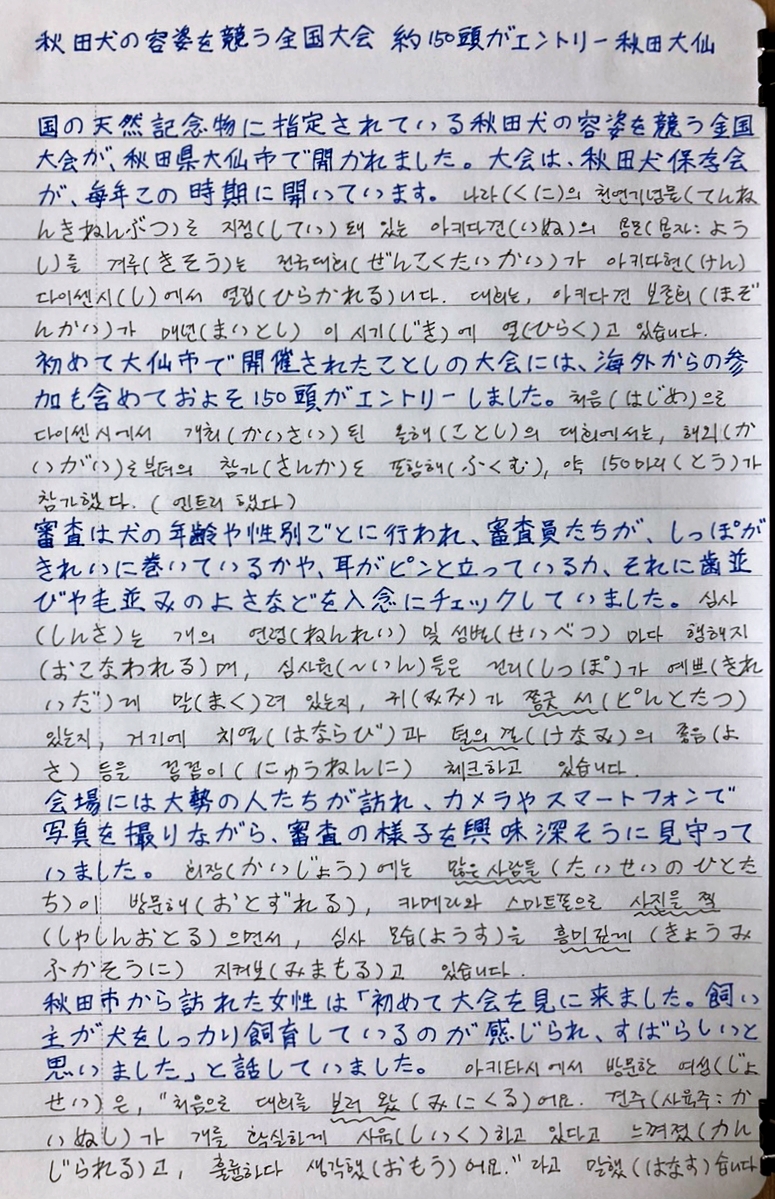 秋田犬の容姿を競う全国大会 約150頭がエントリー 秋田大仙
国の天然記念物に指定されている秋田犬の容姿を競う全国
大会が、秋田県大仙市で開かれました。大会は、秋田犬保存会
が、毎年この時期に開いています。 나라(くに)의 천연기념물(てんねん
きねんぶつ)로 지정(してい)돼 있는 아키다견(いぬ)의 용모(용자: よう
し)를 겨루(きそう)는 전국대회(ぜんこくたいかい)가 아키다현(けん)
다이센시(し)에서 열립(ひらかれる)니다. 대회는, 아키다견 보존회(ほぞ
んかい)가 매년(まいとし) 이 시기(じき)에 열(ひらく)고 있습니다.
初めて大仙市で開催されたことしの大会には、海外からの参
加も含めておよそ150頭がエントリーしました。 처음(はじめ)으로
다이센시에서 개최(かいさい)된 올해(ことし)의 대회에서는, 해외(か
いがい)로부터의 참가(さんか)도 포함해(ふくむ), 약 150마리(とう)가
참가했다. (엔트리 했다)
審査は犬の年齢や性別ごとに行われ、審査員たちが、しっぽが
きれいに巻いているかや、耳がピンと立っているか、それに歯並
びや毛並みのよさなどを入念にチェックしていました。 심사
(しんさ)는 개의 연령(ねんれい) 및 성별(せいべつ) 마다 행해지
(おこなわれる)며, 심사원(~いん)들은 꼬리(しっぽ)가 예쁘(きれ
いだ)게 말(まく)려 있는지, 귀(みみ)가 쫑긋 서(ピんとたつ)
있는지, 거기에 치열(はならび)과 털의 결(けなみ)의 좋음(よ
さ) 등을 꼼꼼이(にゅうねんに) 체크하고 있습니다.
会場には大勢の人たちが訪れ、カメラやスマートフォンで
写真を撮りながら、審査の様子を興味深そうに見守って
いました。 회장(かいじょう)에는 많은 사람들(たいせいのひとた
ち)이 방문해(おとずれる), 카메라와 스마트폰으로 사진을 찍
(しゃしんおとる)으면서, 심사 모습(ようす)을 흥미깊게(きょうみ
ふかそうに) 지켜보(みまもる)고 있습니다.
秋田市から訪れた女性は「初めて大会を見に来ました。飼い
主が犬をしっかり飼育しているのが感じられ、すばらしいと
思いました」と話していました。 아키타시에서 방문한 여성(じょ
せい)은, "처음으로 대회를 보러 왔(みにくる)어요. 견주(사육주: か
いぬし)가 개를 확실하게 사육(しいく)하고 있다고 느껴졌(かん
じられる)고, 훌륭하다 생각했(おもう)어요." 라고 말했(はなす)습니다